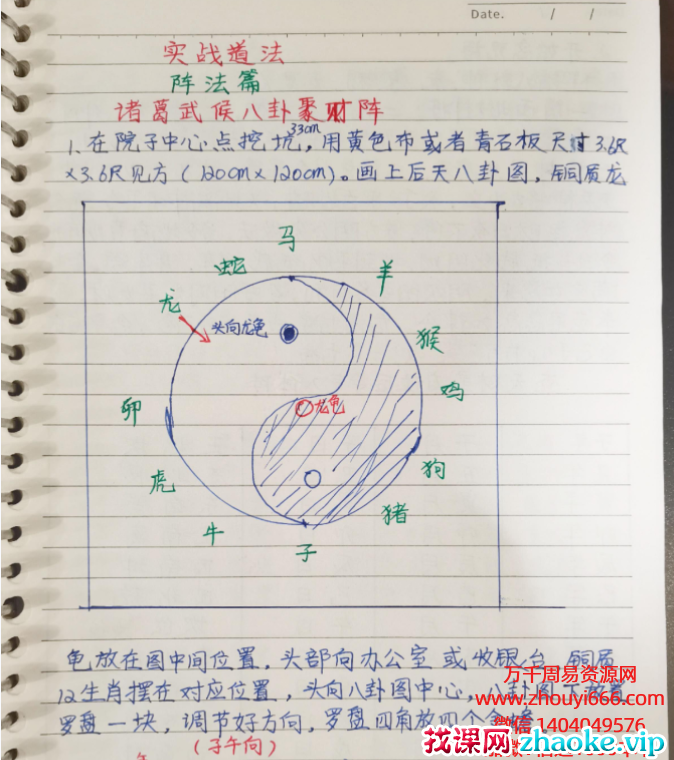 Date. / /
实战道法
阵法篇
诸葛武候八卦聚财阵
33cm
1、在院子中心点挖坑，用黄色布或者青石板尺寸3.6尺
×3.6尺见方（120cm×120cm）。画上后天八卦图，铜质龙
马
蛇
羊
龙
头向龙龟
猴
鸡
卯
龙龟
狗
虎
猪
牛
子
龟放在图中间位置，头部向办公室或收银台，铜质
12生肖摆在对应位置，头向八卦图中心，八卦图下放置
罗盘一块，调节好方向，罗盘四角放四个金
（子午向）
万千周易资源网
www.zhouyi666.com
微信1404049576
找课网zhaoke.vip